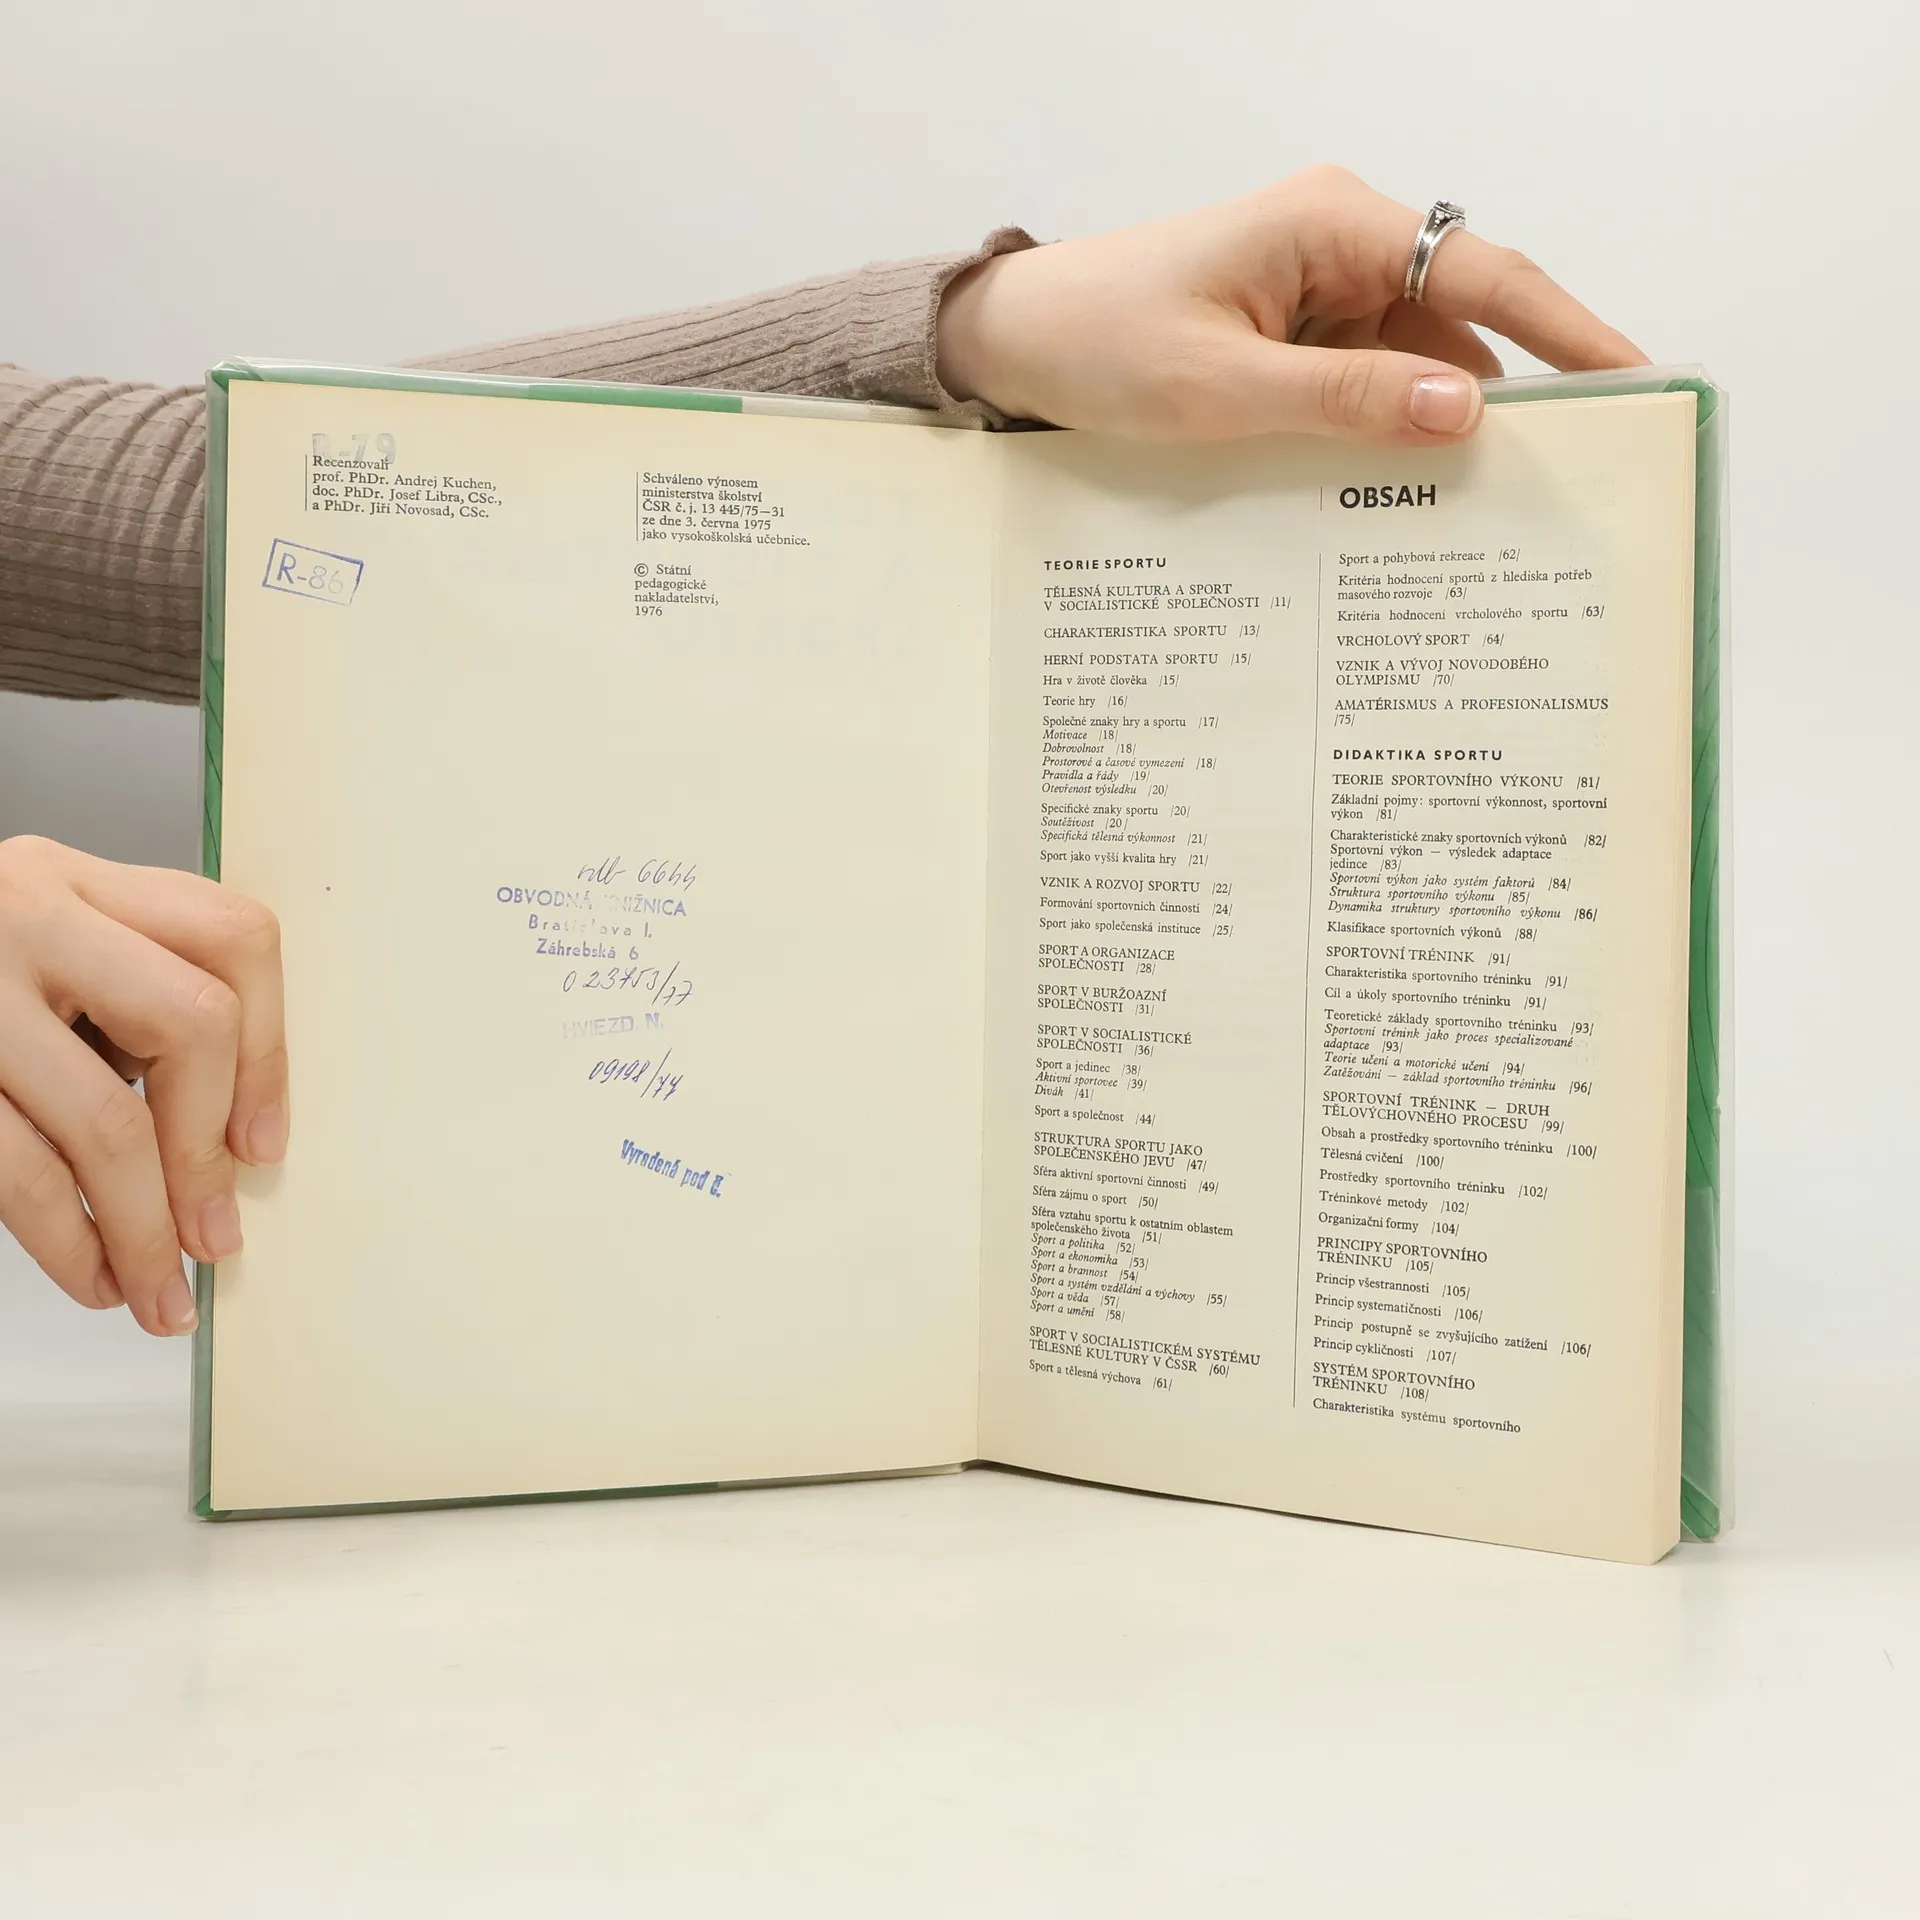 R-79
Recenzovali
prof. PhDr. Andrej Kuchen,
doc. PhDr. Josef Libra, CSc.,
a PhDr. Jiří Novosad, CSc.
R-86
Schváleno výnosem
ministerstva školství
ČSR č. j. 13 445/75—31
ze dne 3. června 1975
jako vysokoškolská učebnice.
© Státní
pedagogické
nakladatelství,
1976
6644
OBVODNÁ KNIŽNICA
Bratislava I.
Záhrebská 6
HVIEZD. N.
Vyradená pod č.
OBSAH
TEORIE SPORTU
TĚLESNÁ KULTURA A SPORT
V SOCIALISTICKÉ SPOLEČNOSTI /11/
CHARAKTERISTIKA SPORTU /13/
HERNÍ PODSTATA SPORTU /15/
Hra v životě člověka /15/
Teorie hry /16/
Společné znaky hry a sportu /17/
Motivace /18/
Dobrovolnost /18/
Prostorové a časové vymezení /18/
Pravidla a řády /19/
Otevřenost výsledku /20/
Specifické znaky sportu /20/
Soutěživost /20/
Specifická tělesná výkonnost /21/
Sport jako vyšší kvalita hry /21/
VZNIK A ROZVOJ SPORTU /22/
Formování sportovních činností /24/
Sport jako společenská instituce /25/
SPORT A ORGANIZACE
SPOLEČNOSTI /28/
SPORT V BURŽOAZNÍ
SPOLEČNOSTI /31/
SPORT V SOCIALISTICKÉ
SPOLEČNOSTI /36/
Sport a jedinec /38/
Aktivní sportovec /39/
Divák /41/
Sport a společnost /44/
STRUKTURA SPORTU JAKO
SPOLEČENSKÉHO JEVU /47/
Sféra aktivní sportovní činnosti /49/
Sféra zájmu o sport /50/
Sféra vztahu sportu k ostatním oblastem
společenského života /51/
Sport a politika /52/
Sport a ekonomika /53/
Sport a brannost /54/
Sport a systém vzdělání a výchovy /55/
Sport a věda /57/
Sport a umění /58/
SPORT V SOCIALISTICKÉM SYSTÉMU
TĚLESNÉ KULTURY V ČSSR /60/
Sport a tělesná výchova /61/
Sport a pohybová rekreace /62/
Kritéria hodnocení sportů z hlediska potřeb
masového rozvoje /63/
Kritéria hodnocení vrcholového sportu /63/
VRCHOLOVÝ SPORT /64/
VZNIK A VÝVOJ NOVODOBÉHO
OLYMPISMU /70/
AMATÉRISMUS A PROFESIONALISMUS
/75/
DIDAKTIKA SPORTU
TEORIE SPORTOVNÍHO VÝKONU /81/
Základní pojmy: sportovní výkonnost, sportovní
výkon /81/
Charakteristické znaky sportovních výkonů /82/
Sportovní výkon — výsledek adaptace
jedince /83/
Sportovní výkon jako systém faktorů /84/
Struktura sportovního výkonu /85/
Dynamika struktury sportovního výkonu /86/
Klasifikace sportovních výkonů /88/
SPORTOVNÍ TRÉNINK /91/
Charakteristika sportovního tréninku /91/
Cíl a úkoly sportovního tréninku /91/
Teoretické základy sportovního tréninku /93/
Sportovní trénink jako proces specializované
adaptace /93/
Teorie učení a motorické učení /94/
Zatěžování — základ sportovního tréninku /96/
SPORTOVNÍ TRÉNINK — DRUH
TĚLOVÝCHOVNÉHO PROCESU /99/
Obsah a prostředky sportovního tréninku /100/
Tělesná cvičení /100/
Prostředky sportovního tréninku /102/
Tréninkové metody /102/
Organizační formy /104/
PRINCIPY SPORTOVNÍHO
TRÉNINKU /105/
Princip všestrannosti /105/
Princip systematičnosti /106/
Princip postupně se zvyšujícího zatížení /106/
Princip cykličnosti /107/
SYSTÉM SPORTOVNÍHO
TRÉNINKU /108/
Charakteristika systému sportovního